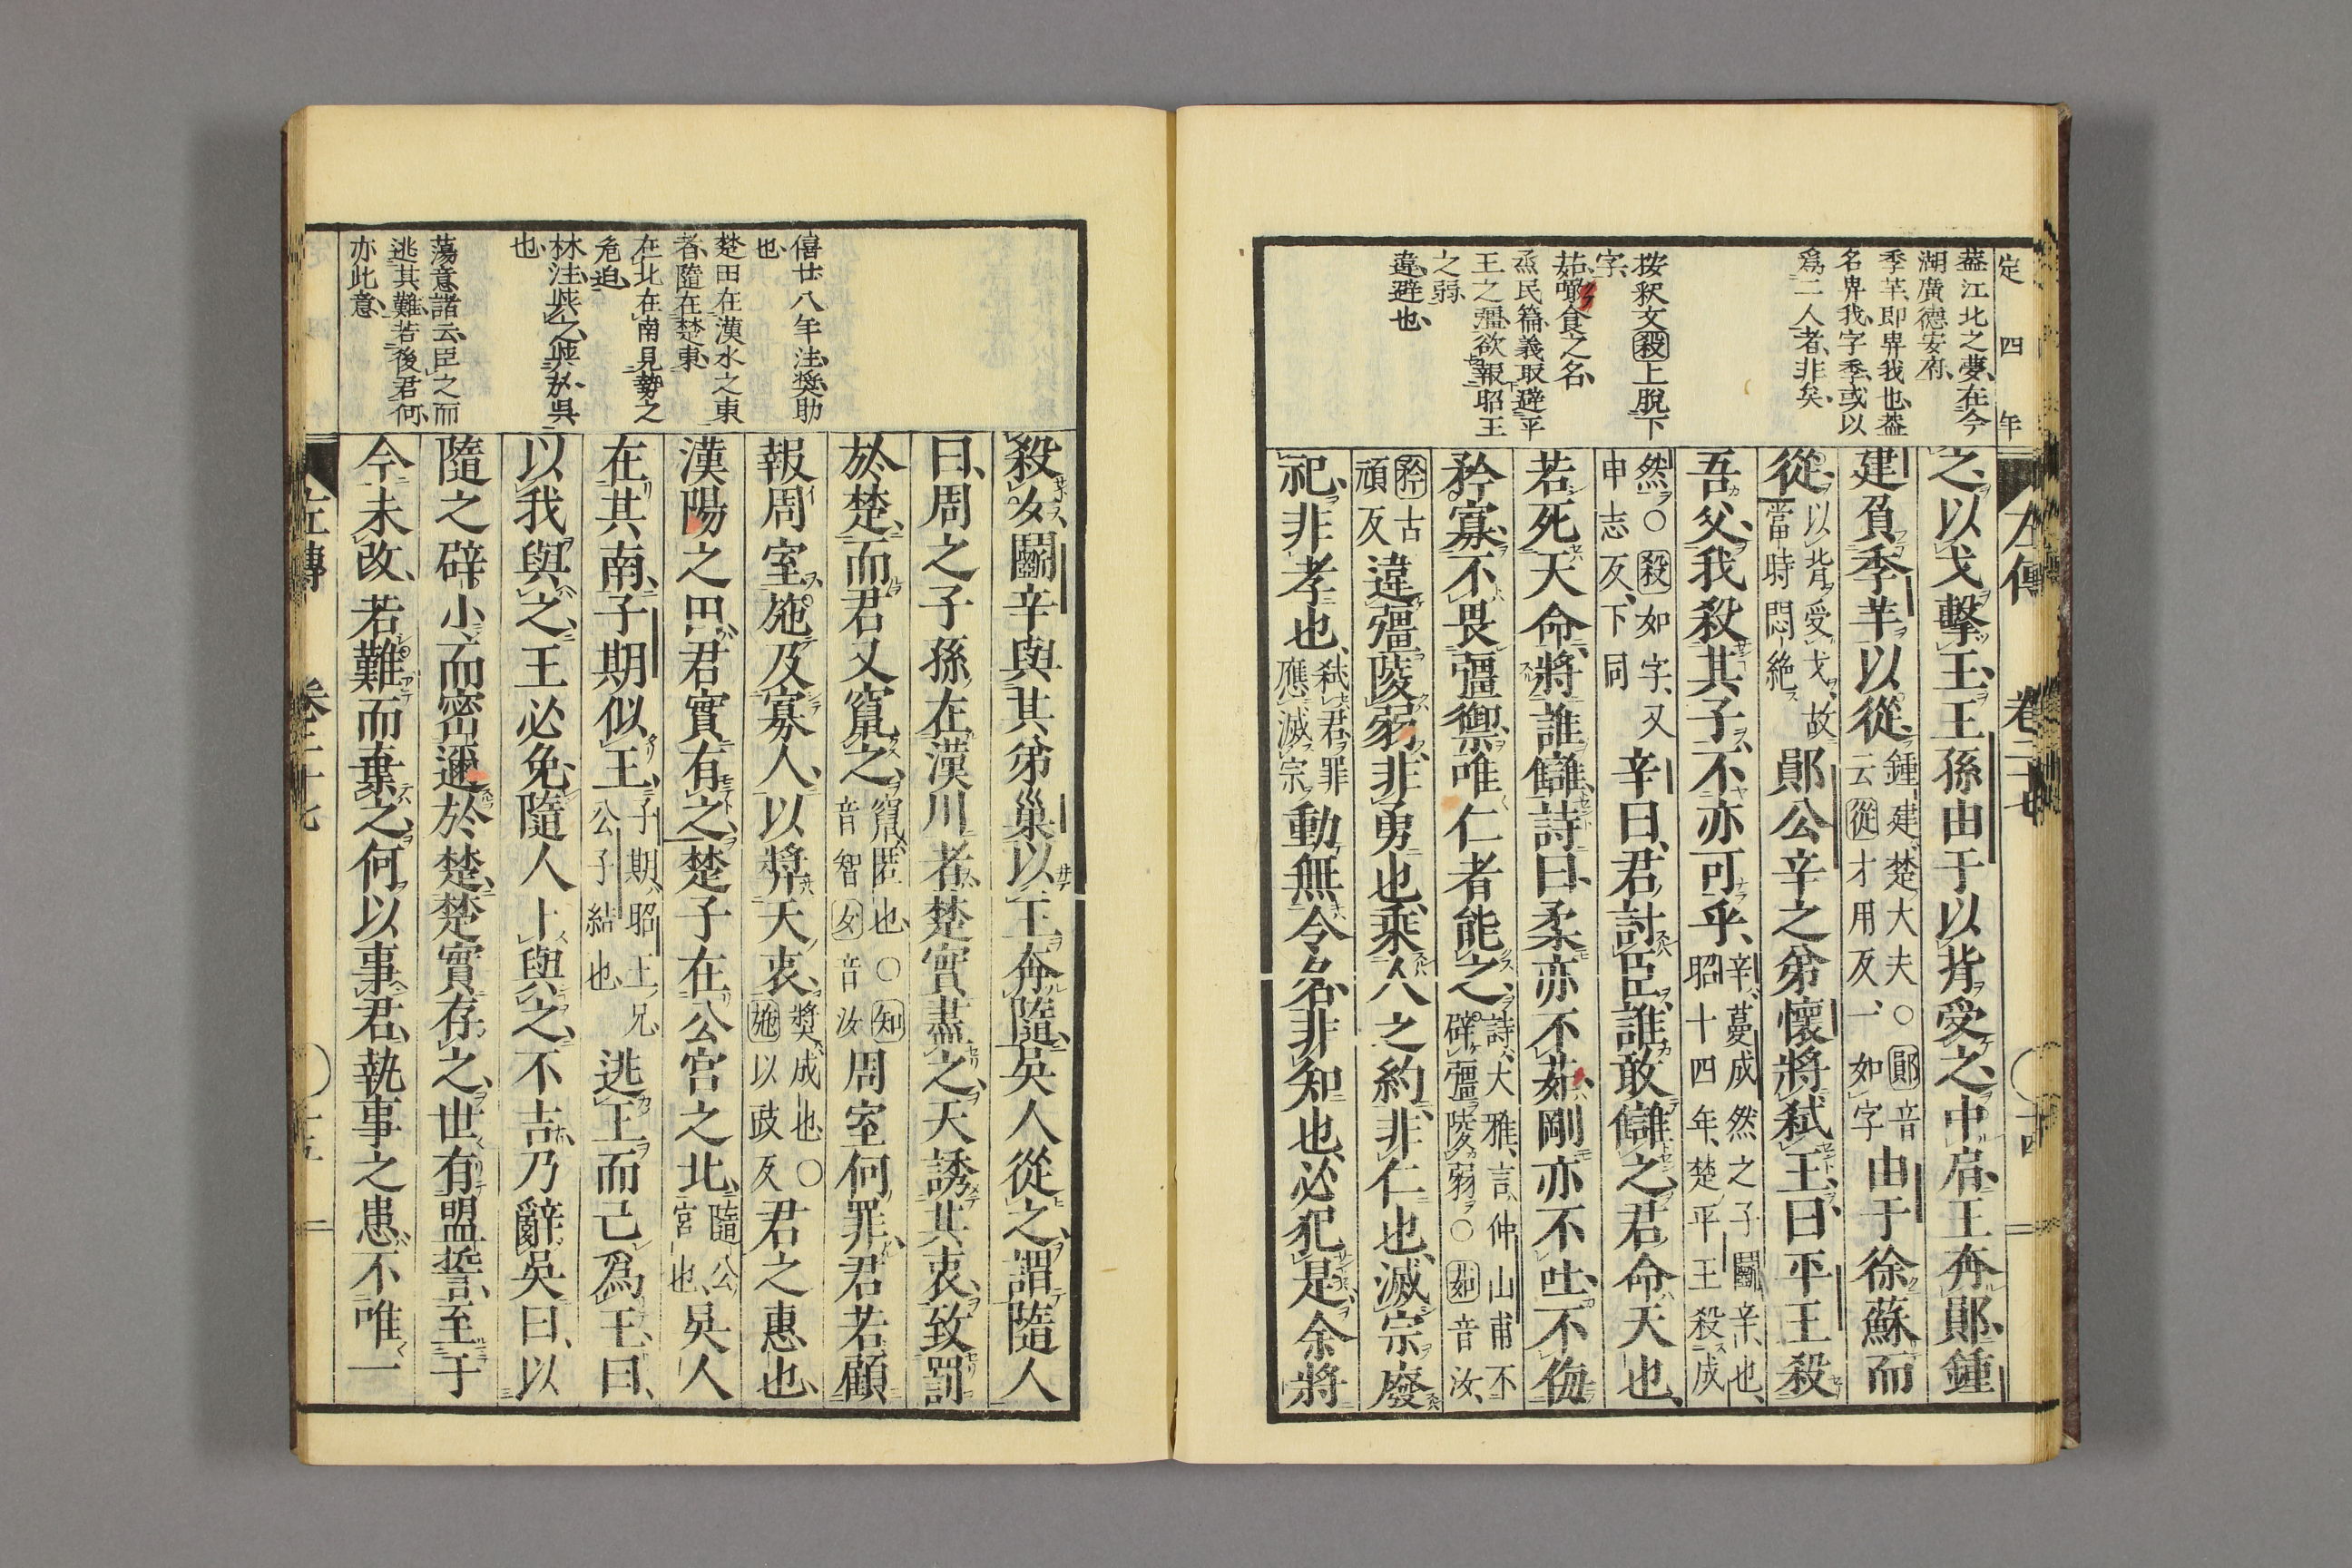 定四年
蓋江北之夢、在今
湖廣德安府、
季芊、即畀我也、蓋
名畀我、字季、或以
爲二人者、非矣、
按釈文殺上脫下
字、
茹、噉食之名、
烝民篇、義取避平
王之彊、欲報昭王
之弱、
違、避也、
左傳 卷二十七 ○十四
之、以戈擊王、王孫由于以背受之、中肩、王奔鄖、鍾
建負季芊以從、鍾建、楚大夫○鄖音
云從才用反、一如字由于徐蘇而
從、以背受戈、故
當時悶絶鄖公辛之弟懷將弑王、曰、平王殺
吾父、我殺其子、不亦可乎、辛、蔓成然之子鬭辛也、
昭十四年、楚平王殺成
然○殺如字、又
申志反、下同辛曰、君討臣、誰敢讎之、君命天也、
若死天命、將誰讎、詩曰、柔亦不茹、剛亦不吐、不侮
矜寡、不畏彊禦、唯仁者能之、詩、大雅、言仲山甫不
辟彊陵弱○茹音汝、
矜古
頑反違彊陵弱、非勇也、乘人之約、非仁也、滅宗廢
祀、非孝也、弑君、罪
應滅宗動無令名、非知也、必犯是、余將
僖廿八年注、奬、助
也、
楚田在漢水之東
者、隨在楚東、
在北在南、見勢之
危迫、
林注、與之、與於吳
也、
蕩意諸云、臣之而
逃其難、若後君何、
亦此意、
殺女、鬭辛與其弟巢以王奔隨、吳人從之、謂隨人
曰、周之子孫在漢川者、楚實盡之、天誘其衷、致罰
於楚、而君又竄之、竄、匿也○知
音智女音汝周室何罪、君若顧
報周室、施及寡人、以奬天衷、奬、成也○
施以豉反君之惠也、
漢陽之田、君實有之、楚子在公宮之北、隨公
宮也、吳人
在其南、子期似王、子期、昭王兄
公子結也、逃王而己爲王、曰、
以我與之、王必免、隨人卜與之、不吉、乃辭吳曰、以
隨之辟小、而密邇於楚、楚實存之、世有盟誓、至于
今未改、若難而棄之、何以事君、執事之患、不唯一
左傳 卷二十七 ○十五